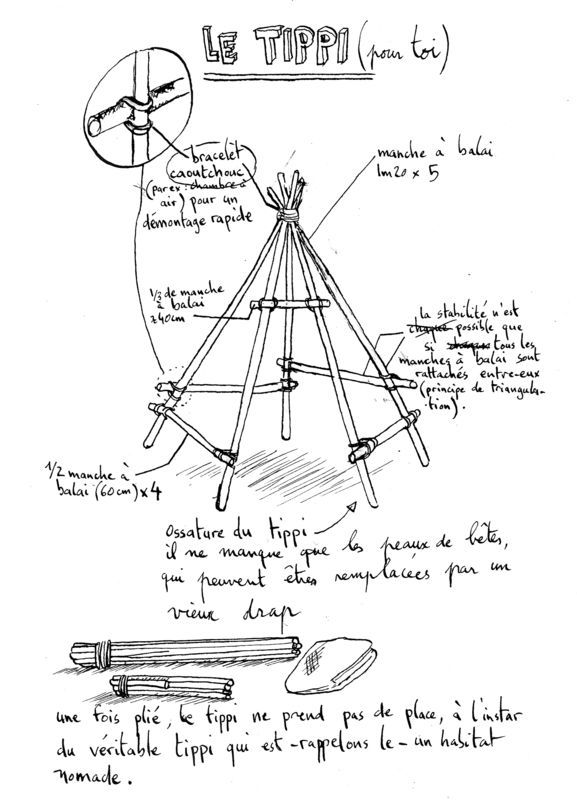 LE TIPPI (pour toi)
bracelet
caoutchouc
(par ex: chambre à
air) pour un
démontage rapide
manche à balai
1m20 x 5
1/3 de manche
à balai
±40cm
la stabilité n'est
chaque possible que
si chaque tous les
manches à balai sont
rattachés entre-eux
(principe de triangula-
tion).
1/2 manche à
balai (60cm) x4
Ossature du tippi
il ne manque que les peaux de bêtes,
qui peuvent êtres remplacées par un
vieux drap
une fois plié, le tippi ne prend pas de place, à l'instar
du véritable tippi qui est -rappelons le- un habitat
nomade.